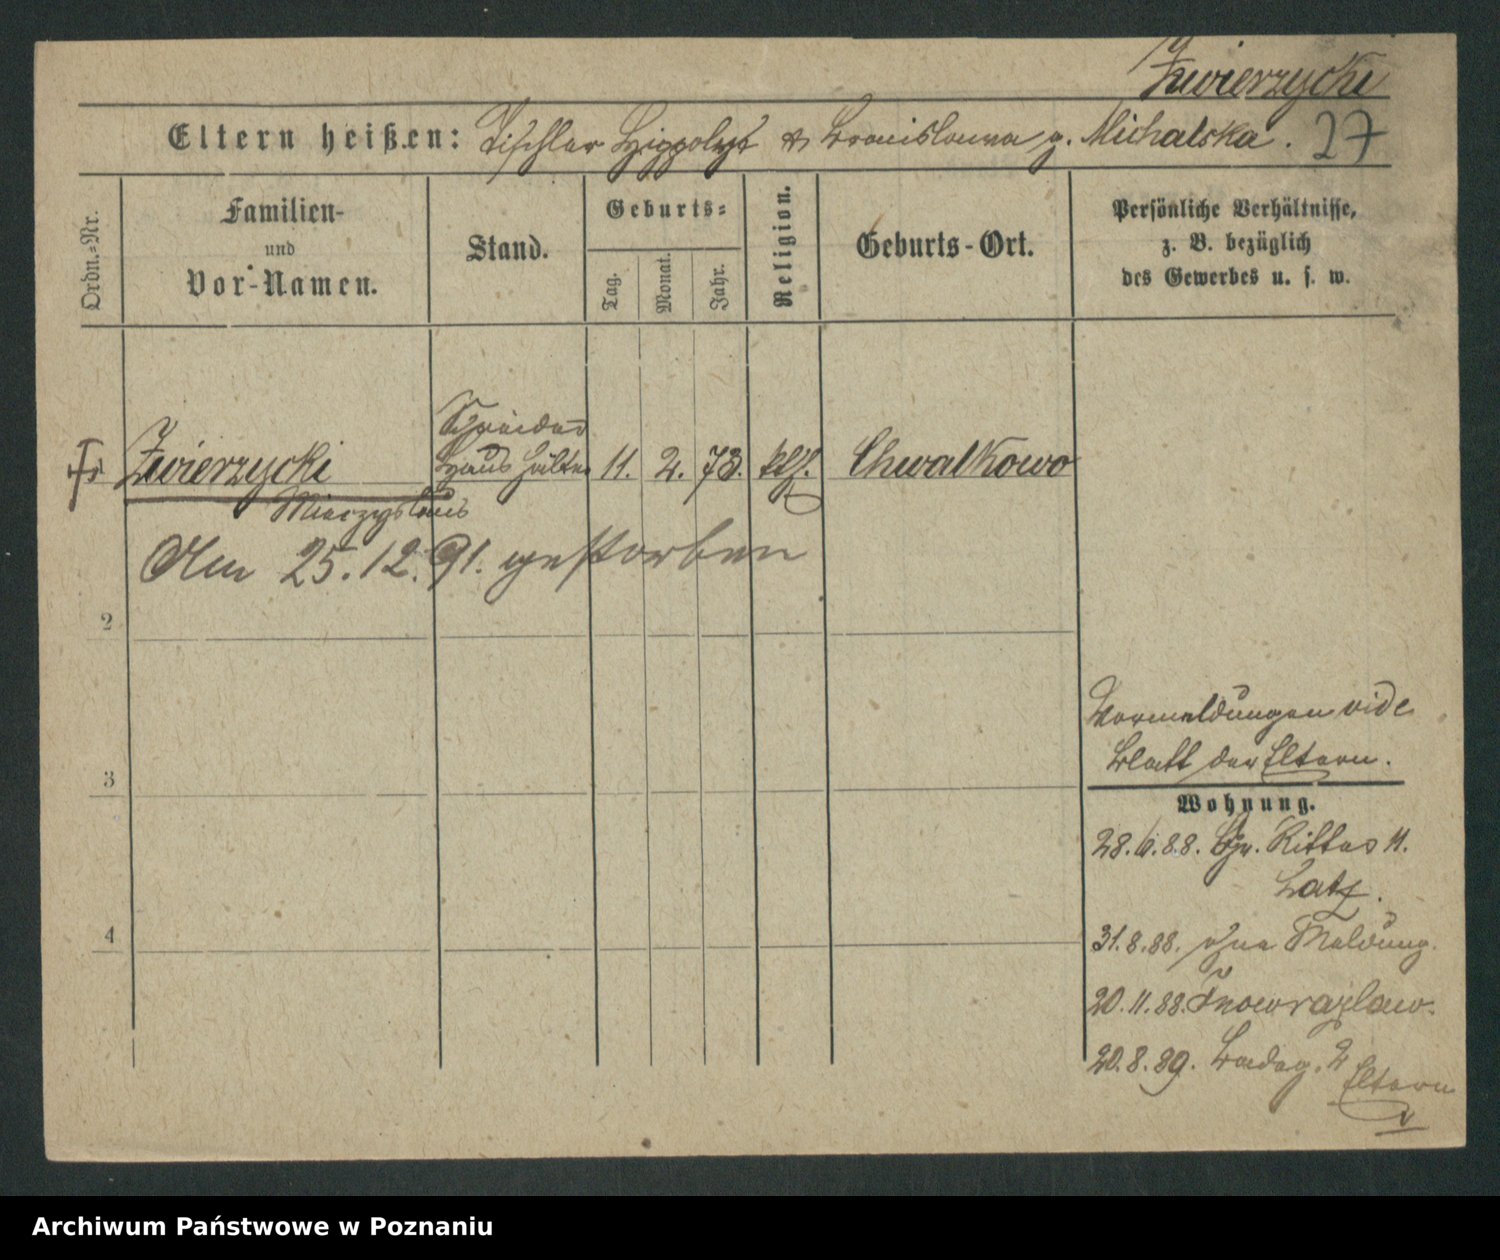 Zwierzycki
Eltern heißen: Tischler Hippolyt & Bronislawa g. Michalska. 27
Ordn.-Nr.
Familien-
und
Vor-Namen.
Stand.
Geburts-
Tag.
Monat.
Jahr.
Religion.
Geburts-Ort.
Persönliche Verhältnisse,
z. B. bezüglich
des Gewerbes u. s. w.
Schneider
Zwierzycki Haushälter 11. 2. 73. kth. Chwalkowo
Mieczyslaus
Am 25.12.91. gestorben
2
3
4
Vormeldungen vide
Blatt der Eltern.
Wohnung.
28.6.88. Gr. Ritter 11.
31.8.88. ohne Meldung.
20.11.88. Inowrazlaw.
20.8.89. 2
Eltern
Archiwum Państwowe w Poznaniu